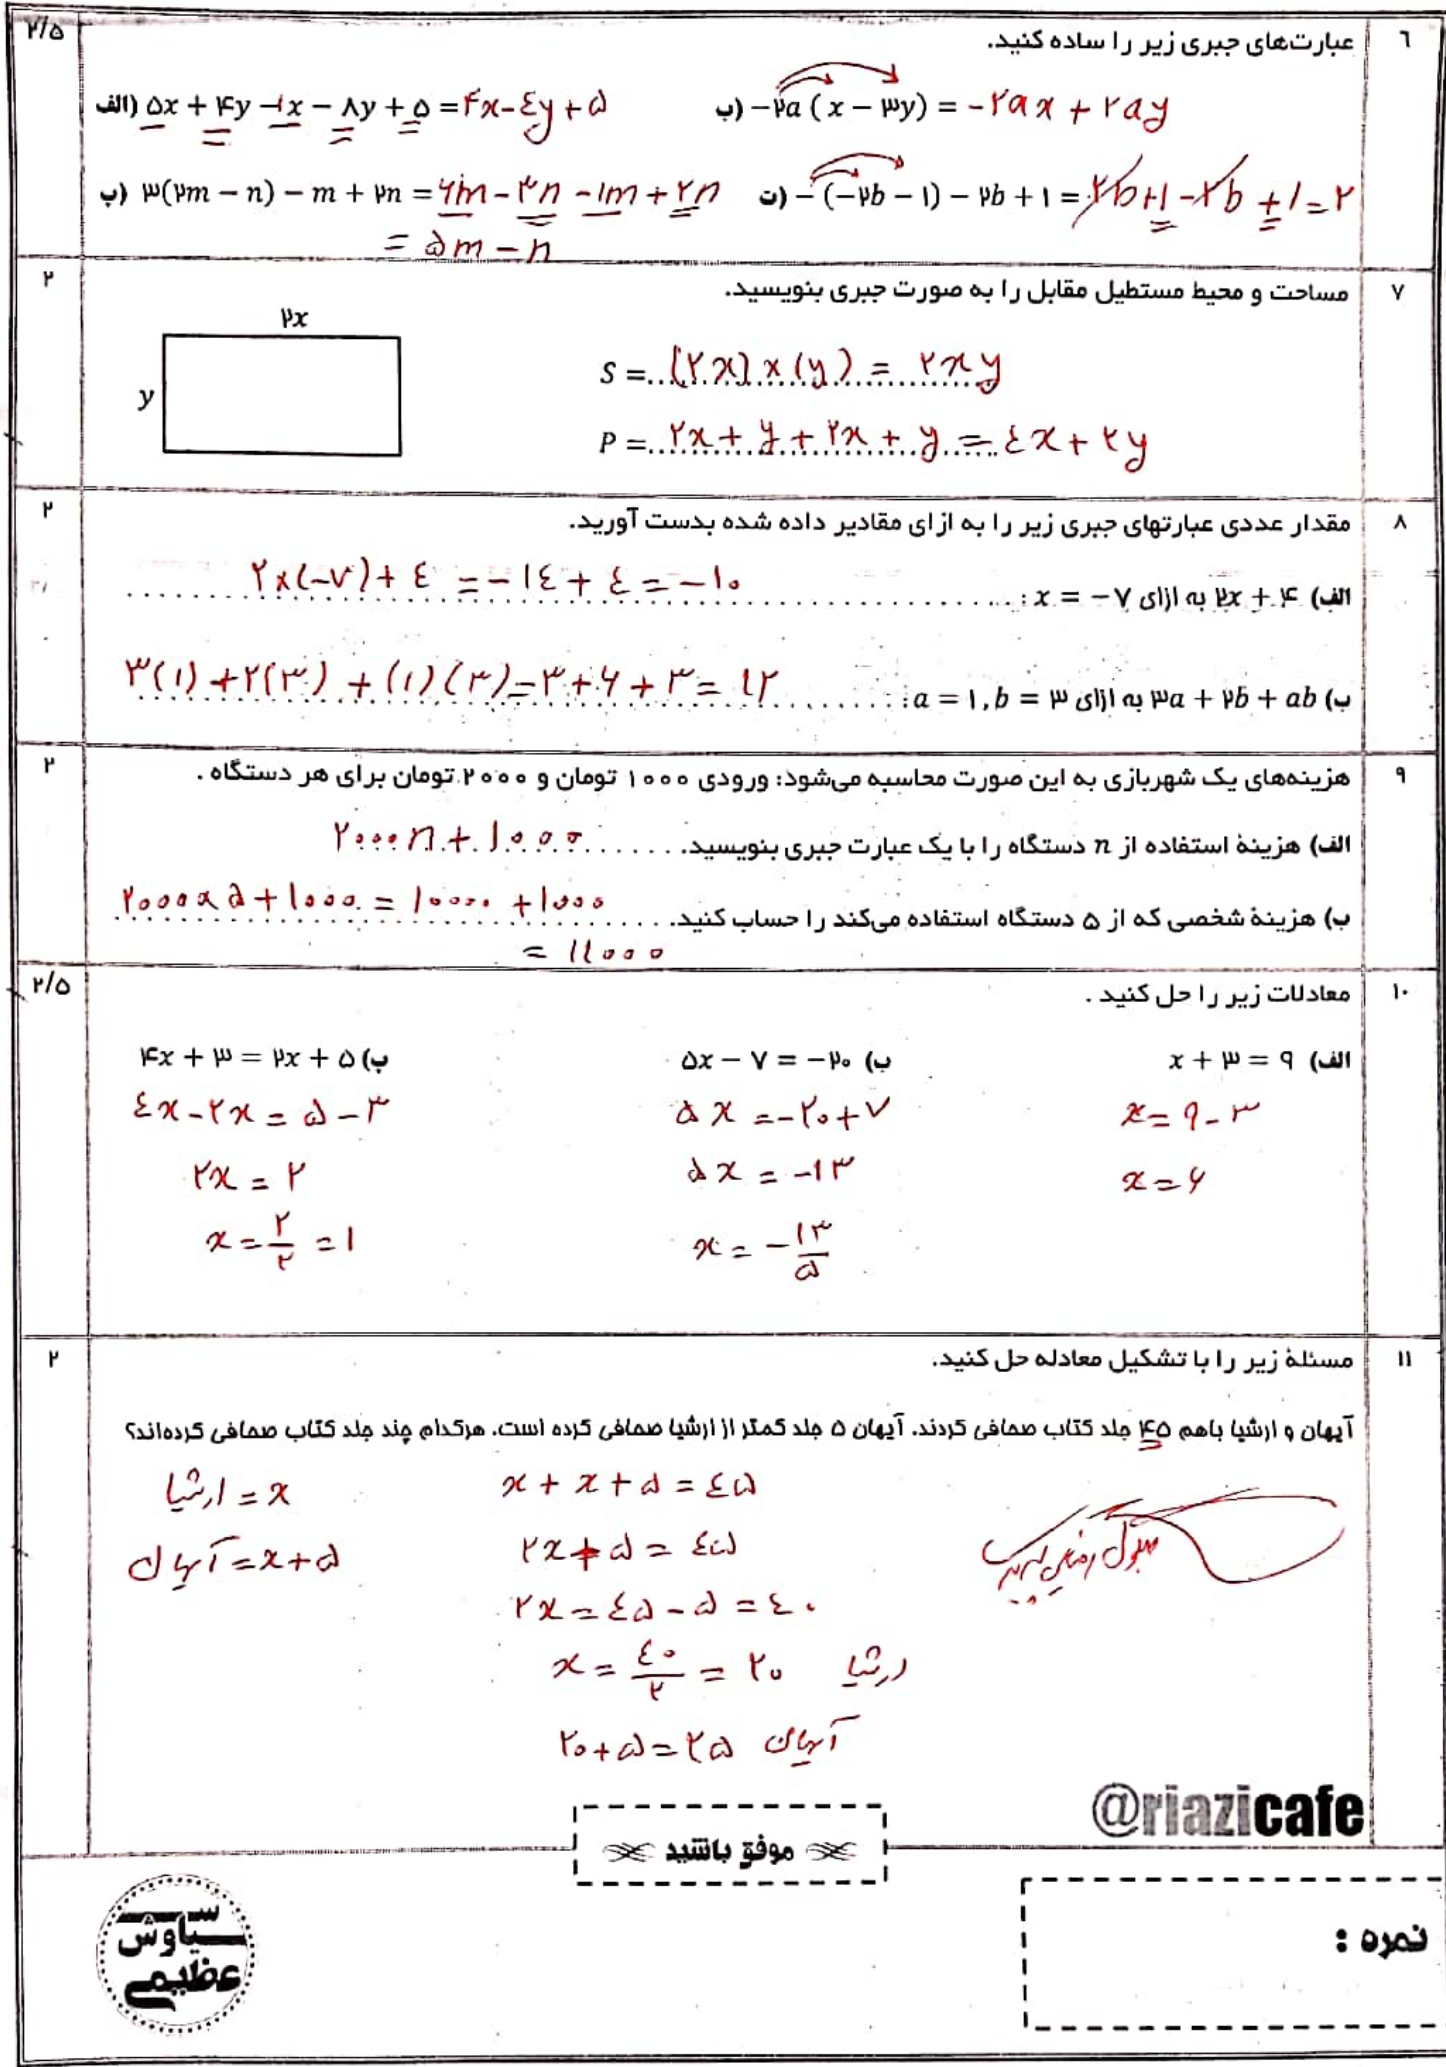 ۶
عبارت‌های جبری زیر را ساده کنید.
۲/۵
الف) ۵x + ۴y − ۱x − ۸y + ۵ = ۴x − ٤y + ۵
ب) −۲a (x − ۳y) = −۲ax + ۲ay
پ) ۳(۲m − n) − m + ۲n = ۶m − ۳n − ۱m + ۲n
= ۵m − n
ت) −(−۲b − ۱) − ۲b + ۱ = ۲b + ۱ − ۲b + ۱ = ۲
۷
مساحت و محیط مستطیل مقابل را به صورت جبری بنویسید.
۲
۲x
y
S = (۲x) × (y) = ۲xy
P = ۲x + y + ۲x + y = ٤x + ۲y
۸
مقدار عددی عبارتهای جبری زیر را به ازای مقادیر داده شده بدست آورید.
۲
الف) ۲x + ۴ به ازای x = −۷ : ۲×(−۷) + ٤ = −۱٤ + ٤ = −۱۰
ب) ۳a + ۲b + ab به ازای a = ۱, b = ۳ : ۳(۱) + ۲(۳) + (۱)(۳) = ۳ + ۶ + ۳ = ۱۲
۹
هزینه‌های یک شهربازی به این صورت محاسبه می‌شود: ورودی ۱۰۰۰ تومان و ۲۰۰۰ تومان برای هر دستگاه .
۲
الف) هزینهٔ استفاده از n دستگاه را با یک عبارت جبری بنویسید. ۲۰۰۰n + ۱۰۰۰
ب) هزینهٔ شخصی که از ۵ دستگاه استفاده می‌کند را حساب کنید. ۲۰۰۰×۵ + ۱۰۰۰ = ۱۰۰۰۰ + ۱۰۰۰
= ۱۱۰۰۰
۱۰
معادلات زیر را حل کنید .
۲/۵
الف) x + ۳ = ۹
x = ۹ − ۳
x = ۶
ب) ۵x − ۷ = −۲۰
۵x = −۲۰ + ۷
۵x = −۱۳
x = −۱۳/۵
پ) ۴x + ۳ = ۲x + ۵
٤x − ۲x = ۵ − ۳
۲x = ۲
x = ۲/۲ = ۱
۱۱
مسئلهٔ زیر را با تشکیل معادله حل کنید.
۲
آیهان و ارشیا باهم ۴۵ جلد کتاب صحافی کردند. آیهان ۵ جلد کمتر از ارشیا صحافی کرده است. هرکدام چند جلد کتاب صحافی کرده‌اند؟
ارشیا = x
آیهان = x + ۵
x + x + ۵ = ٤۵
۲x + ۵ = ٤۵
۲x = ٤۵ − ۵ = ٤۰
x = ٤۰/۲ = ۲۰ ارشیا
۲۰ + ۵ = ۲۵ آیهان
@riazicafe
موفق باشید
سیاوش
عظیمی
نمره :